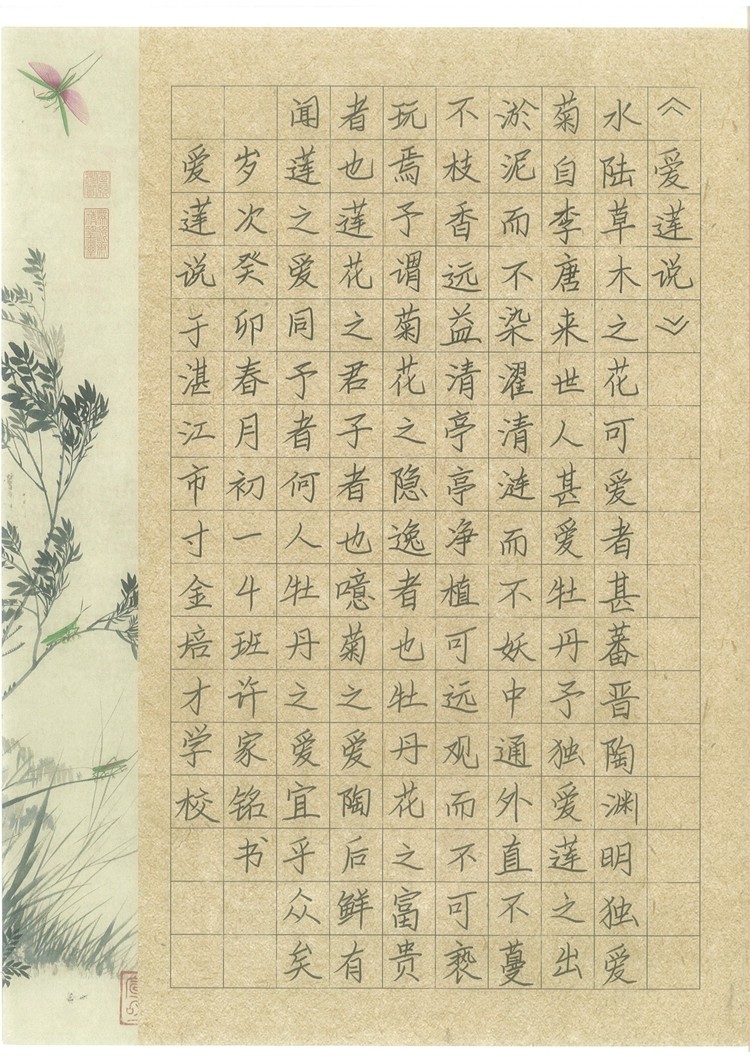 《爱莲说》
水陆草木之花可爱者甚蕃晋陶渊明独爱
菊自李唐来世人甚爱牡丹予独爱莲之出
淤泥而不染濯清涟而不妖中通外直不蔓
不枝香远益清亭亭净植可远观而不可亵
玩焉予谓菊花之隐逸者也牡丹花之富贵
者也莲花之君子者也噫菊之爱陶后鲜有
闻莲之爱同予者何人牡丹之爱宜乎众矣
岁次癸卯春月初一4班许家铭书
爱莲说于湛江市寸金培才学校